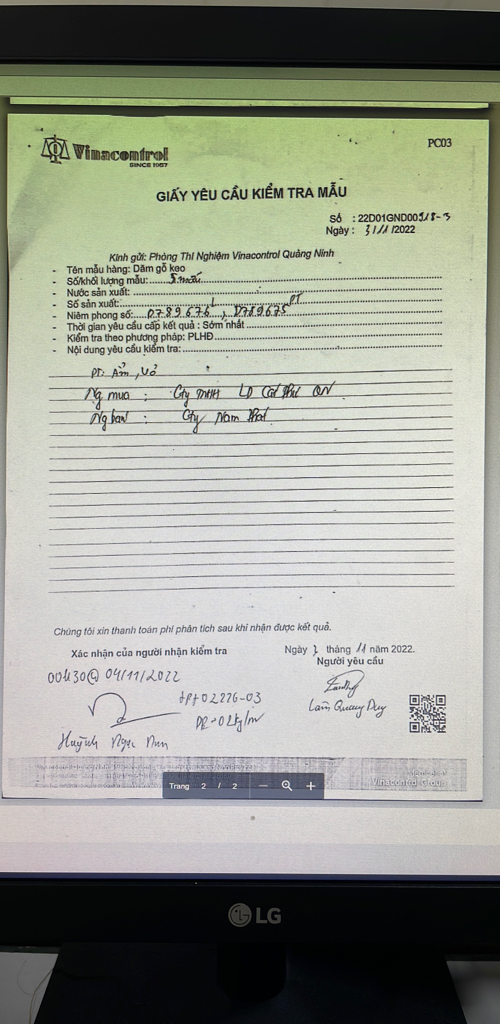 Vinacontrol
SINCE 1957
PC03
GIẤY YÊU CẦU KIỂM TRA MẪU
Số : 22D01GND00918-3
Ngày: 3/11/2022
Kính gửi: Phòng Thí Nghiệm Vinacontrol Quảng Ninh
- Tên mẫu hàng: Dăm gỗ keo
- Số/khối lượng mẫu:
- Nước sản xuất:
- Số sản xuất:
- Niêm phong số: 0789676, 0789675
- Thời gian yêu cầu cấp kết quả : Sớm nhất
- Kiểm tra theo phương pháp: PLHĐ
- Nội dung yêu cầu kiểm tra:
PT: Ẩm, Vỏ
Ng mua : Cty TNHH LD QN
Ng bán : Cty Nam
Chúng tôi xin thanh toán phí phân tích sau khi nhận được kết quả.
Xác nhận của người nhận kiểm tra
Ngày 3 tháng 11 năm 2022.
Người yêu cầu
04/11/2022
02276-03
Lâm Quang Duy
Huỳnh Ngọc
Vinacontrol Group
Trang 2 / 2 — +
LG